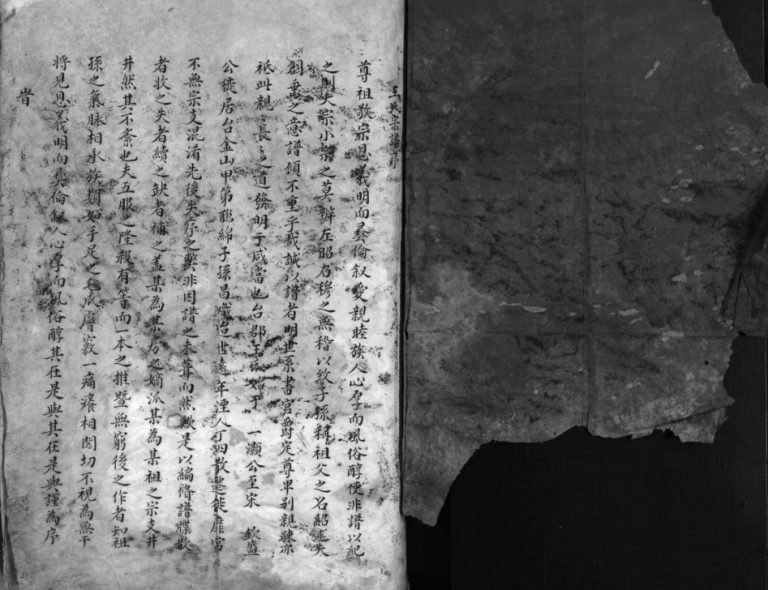 王氏宗譜序
尊祖敬宗恩義明而彛倫叙愛親睦族人心厚而風俗醇使非譜以紀
之則大宗小宗之莫辨左昭右穆之無稽以致子孫稱祖父之名紹述失
創垂之意譜顧不重乎哉誠以譜者明世系書官爵定尊卑别親疎亦
祗此親親長長之道發明于咸當也台郡王氏始于 一瀬公至宋 欽
公徙居台金山甲第聯綿子孫昌盛台世遠年湮人丁四散遷徙靡常
不無宗支混淆先後失序之弊非因譜之未葺而然歟是以編脩譜牒散
者收之失者續之缺者補之盖某為某房之嫡派某為某祖之宗支井
井然其不紊也夫五服之隆殺有等而一本之推暨無窮後之作者知祖
孫之氣脉相承族類如手足之毛爪膚竅一痛癢相関切不視為無干
将見恩義明而彛倫叙人心厚而風俗醇其在是與其在是與謹為序
旹